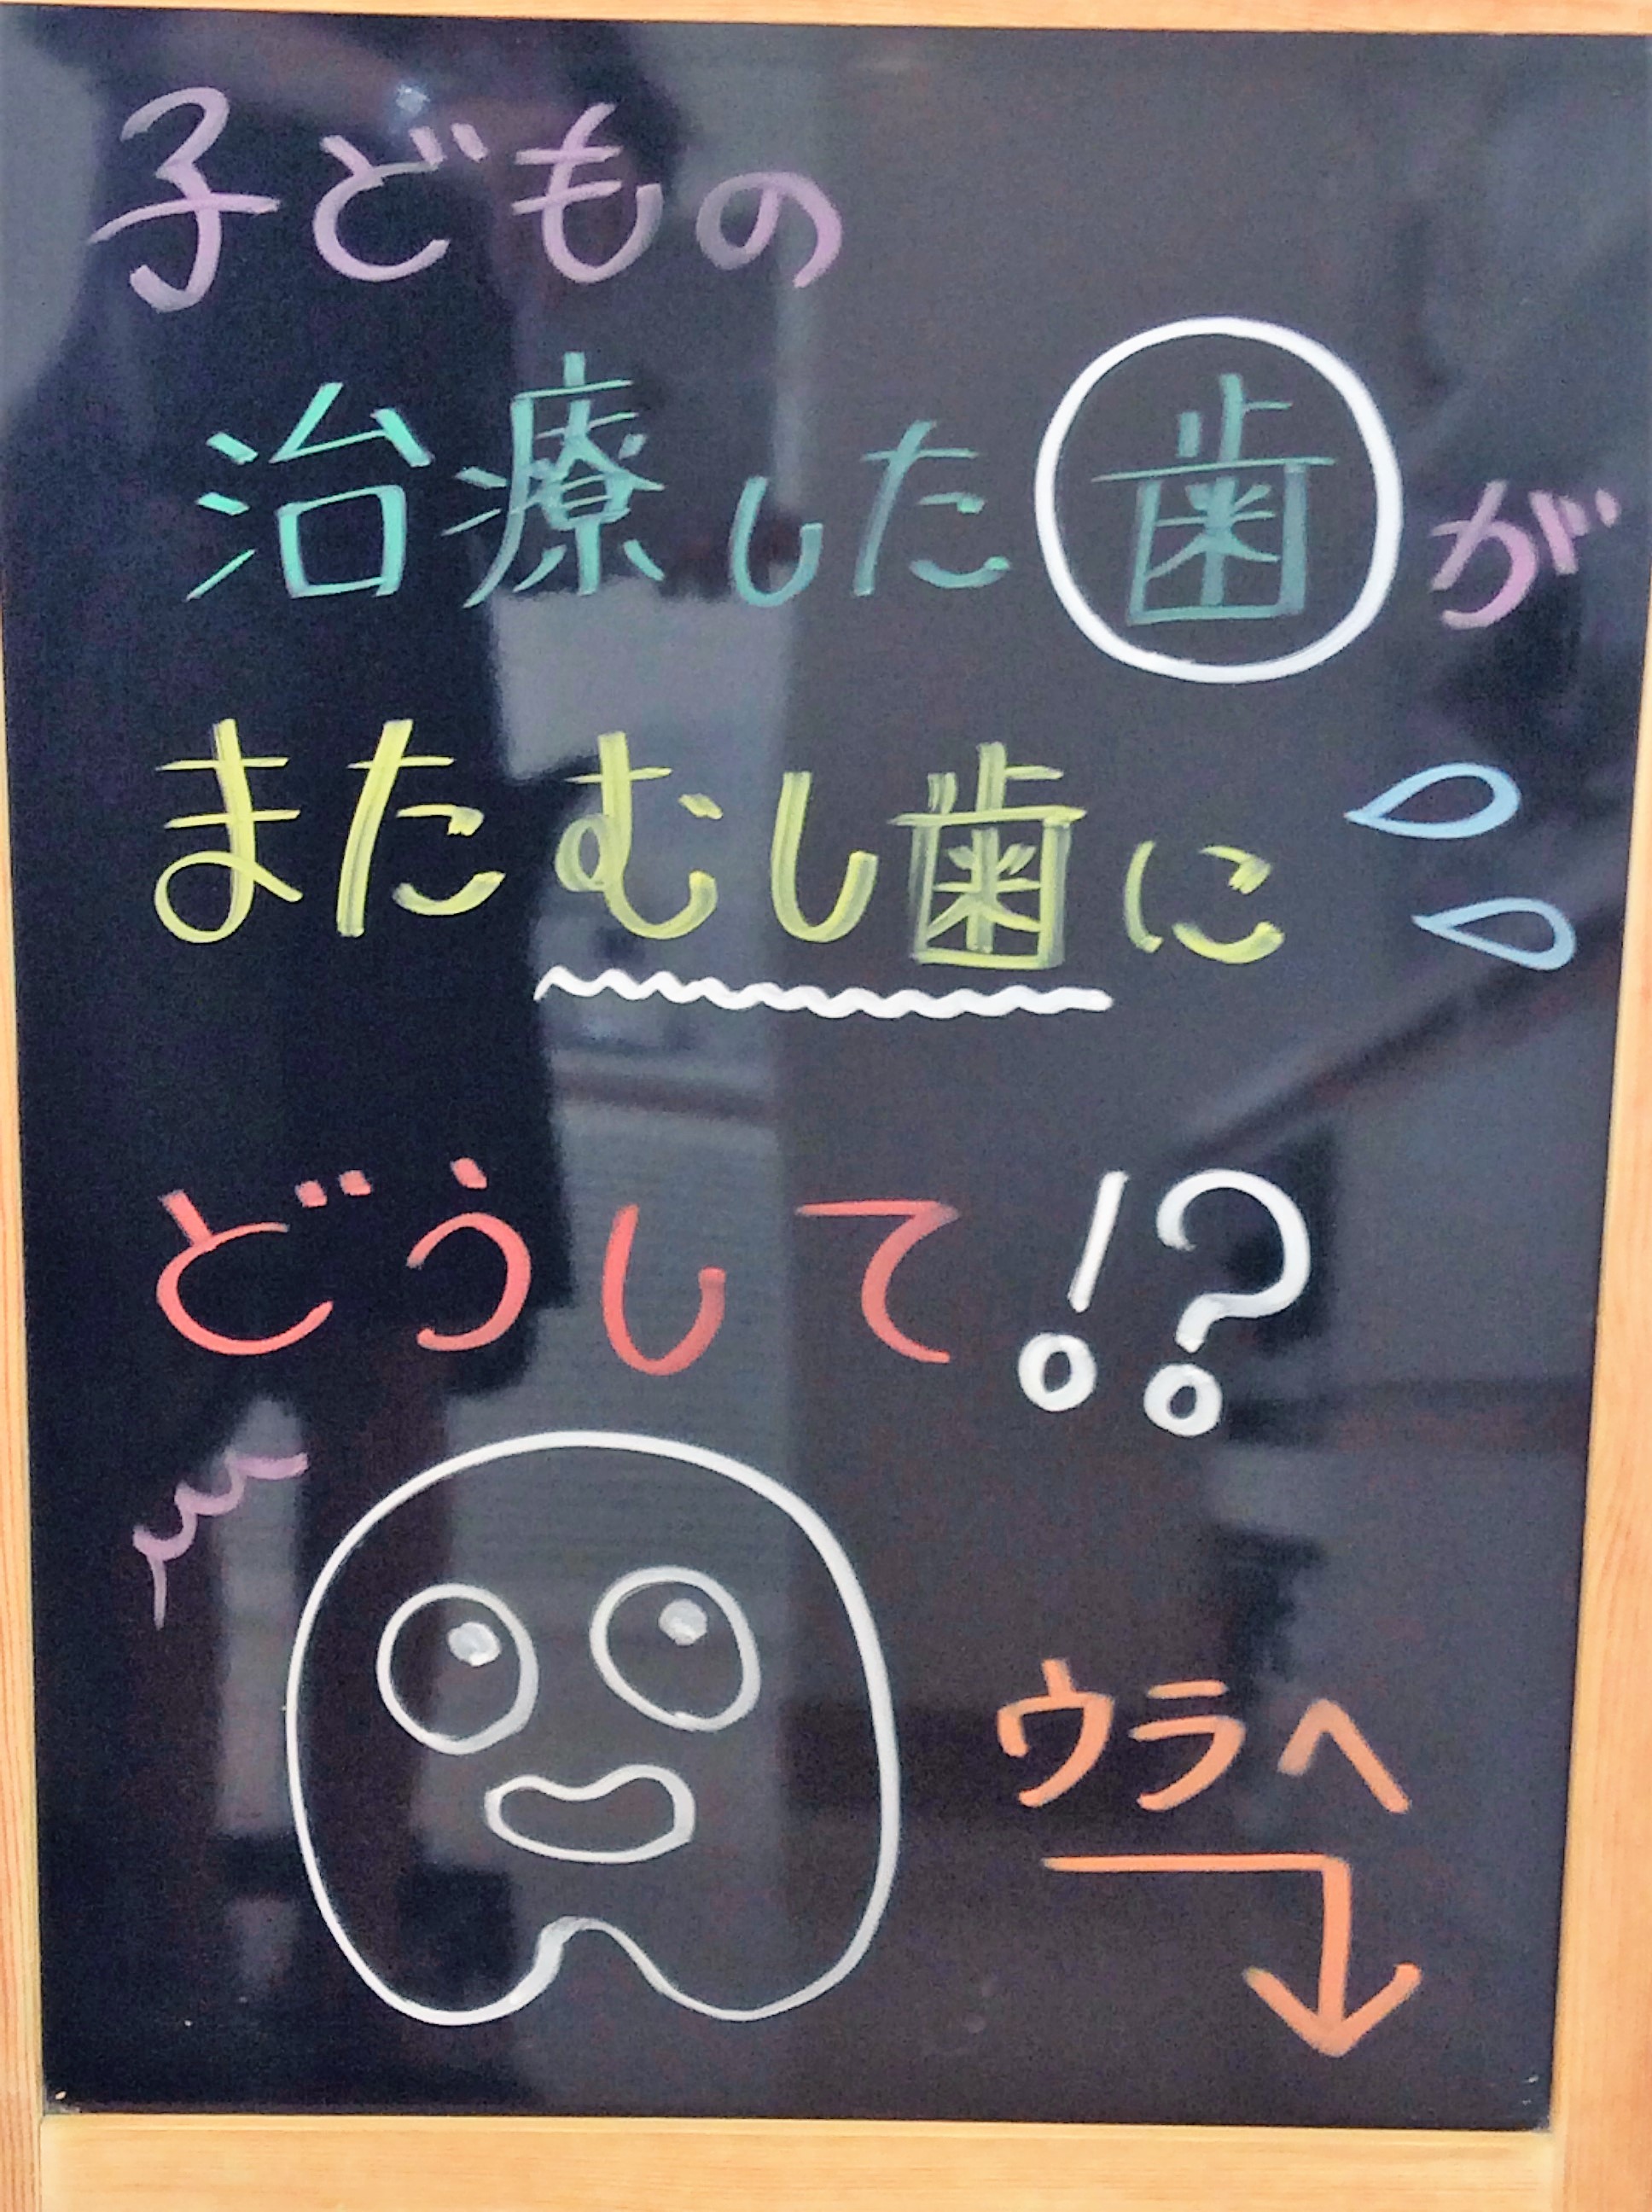 子どもの
治療した歯が
またむし歯に
どうして!?
ウラへ